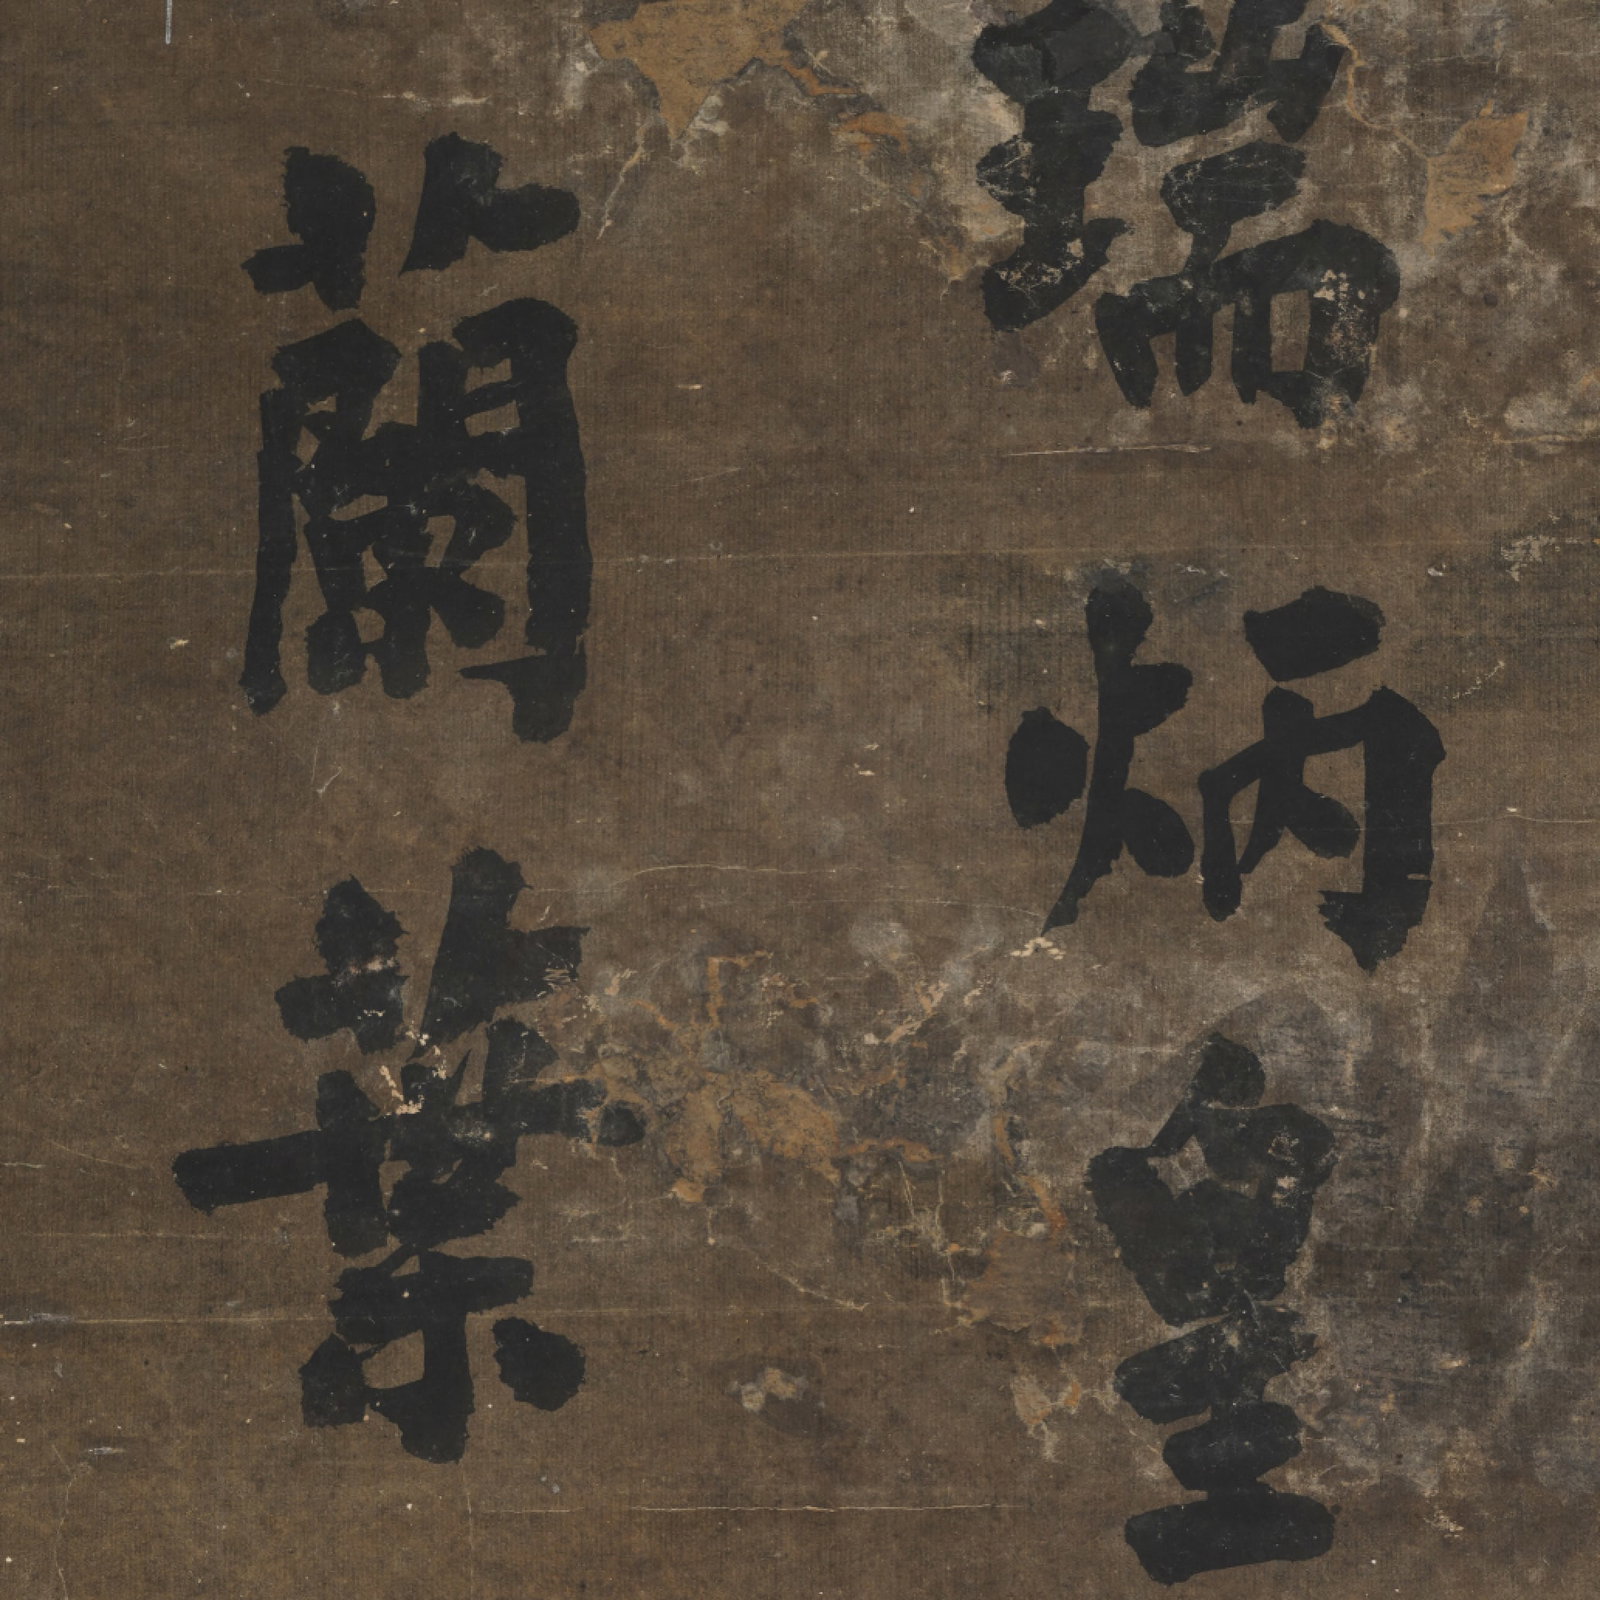 瑞炳皇
蘭葉